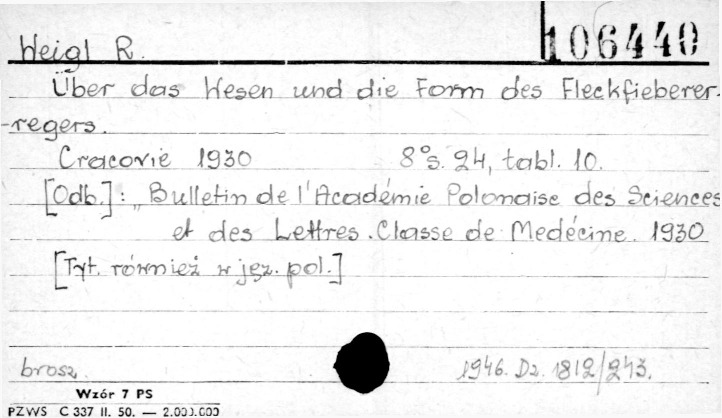 Weigl R.
106440
Über das Wesen und die Form des Fleckfieberer-
-regers.
Cracovie 1930 8° s. 24, tabl. 10.
[Odb.]: „Bulletin de l'Académie Polonaise des Sciences
et des Lettres. Classe de Medécine. 1930
[Tyt. również w jęz. pol.]
brosz. 1946. Dz. 1812/243.
Wzór 7 PS
PZWS C 337 II. 50. — 2.000.000